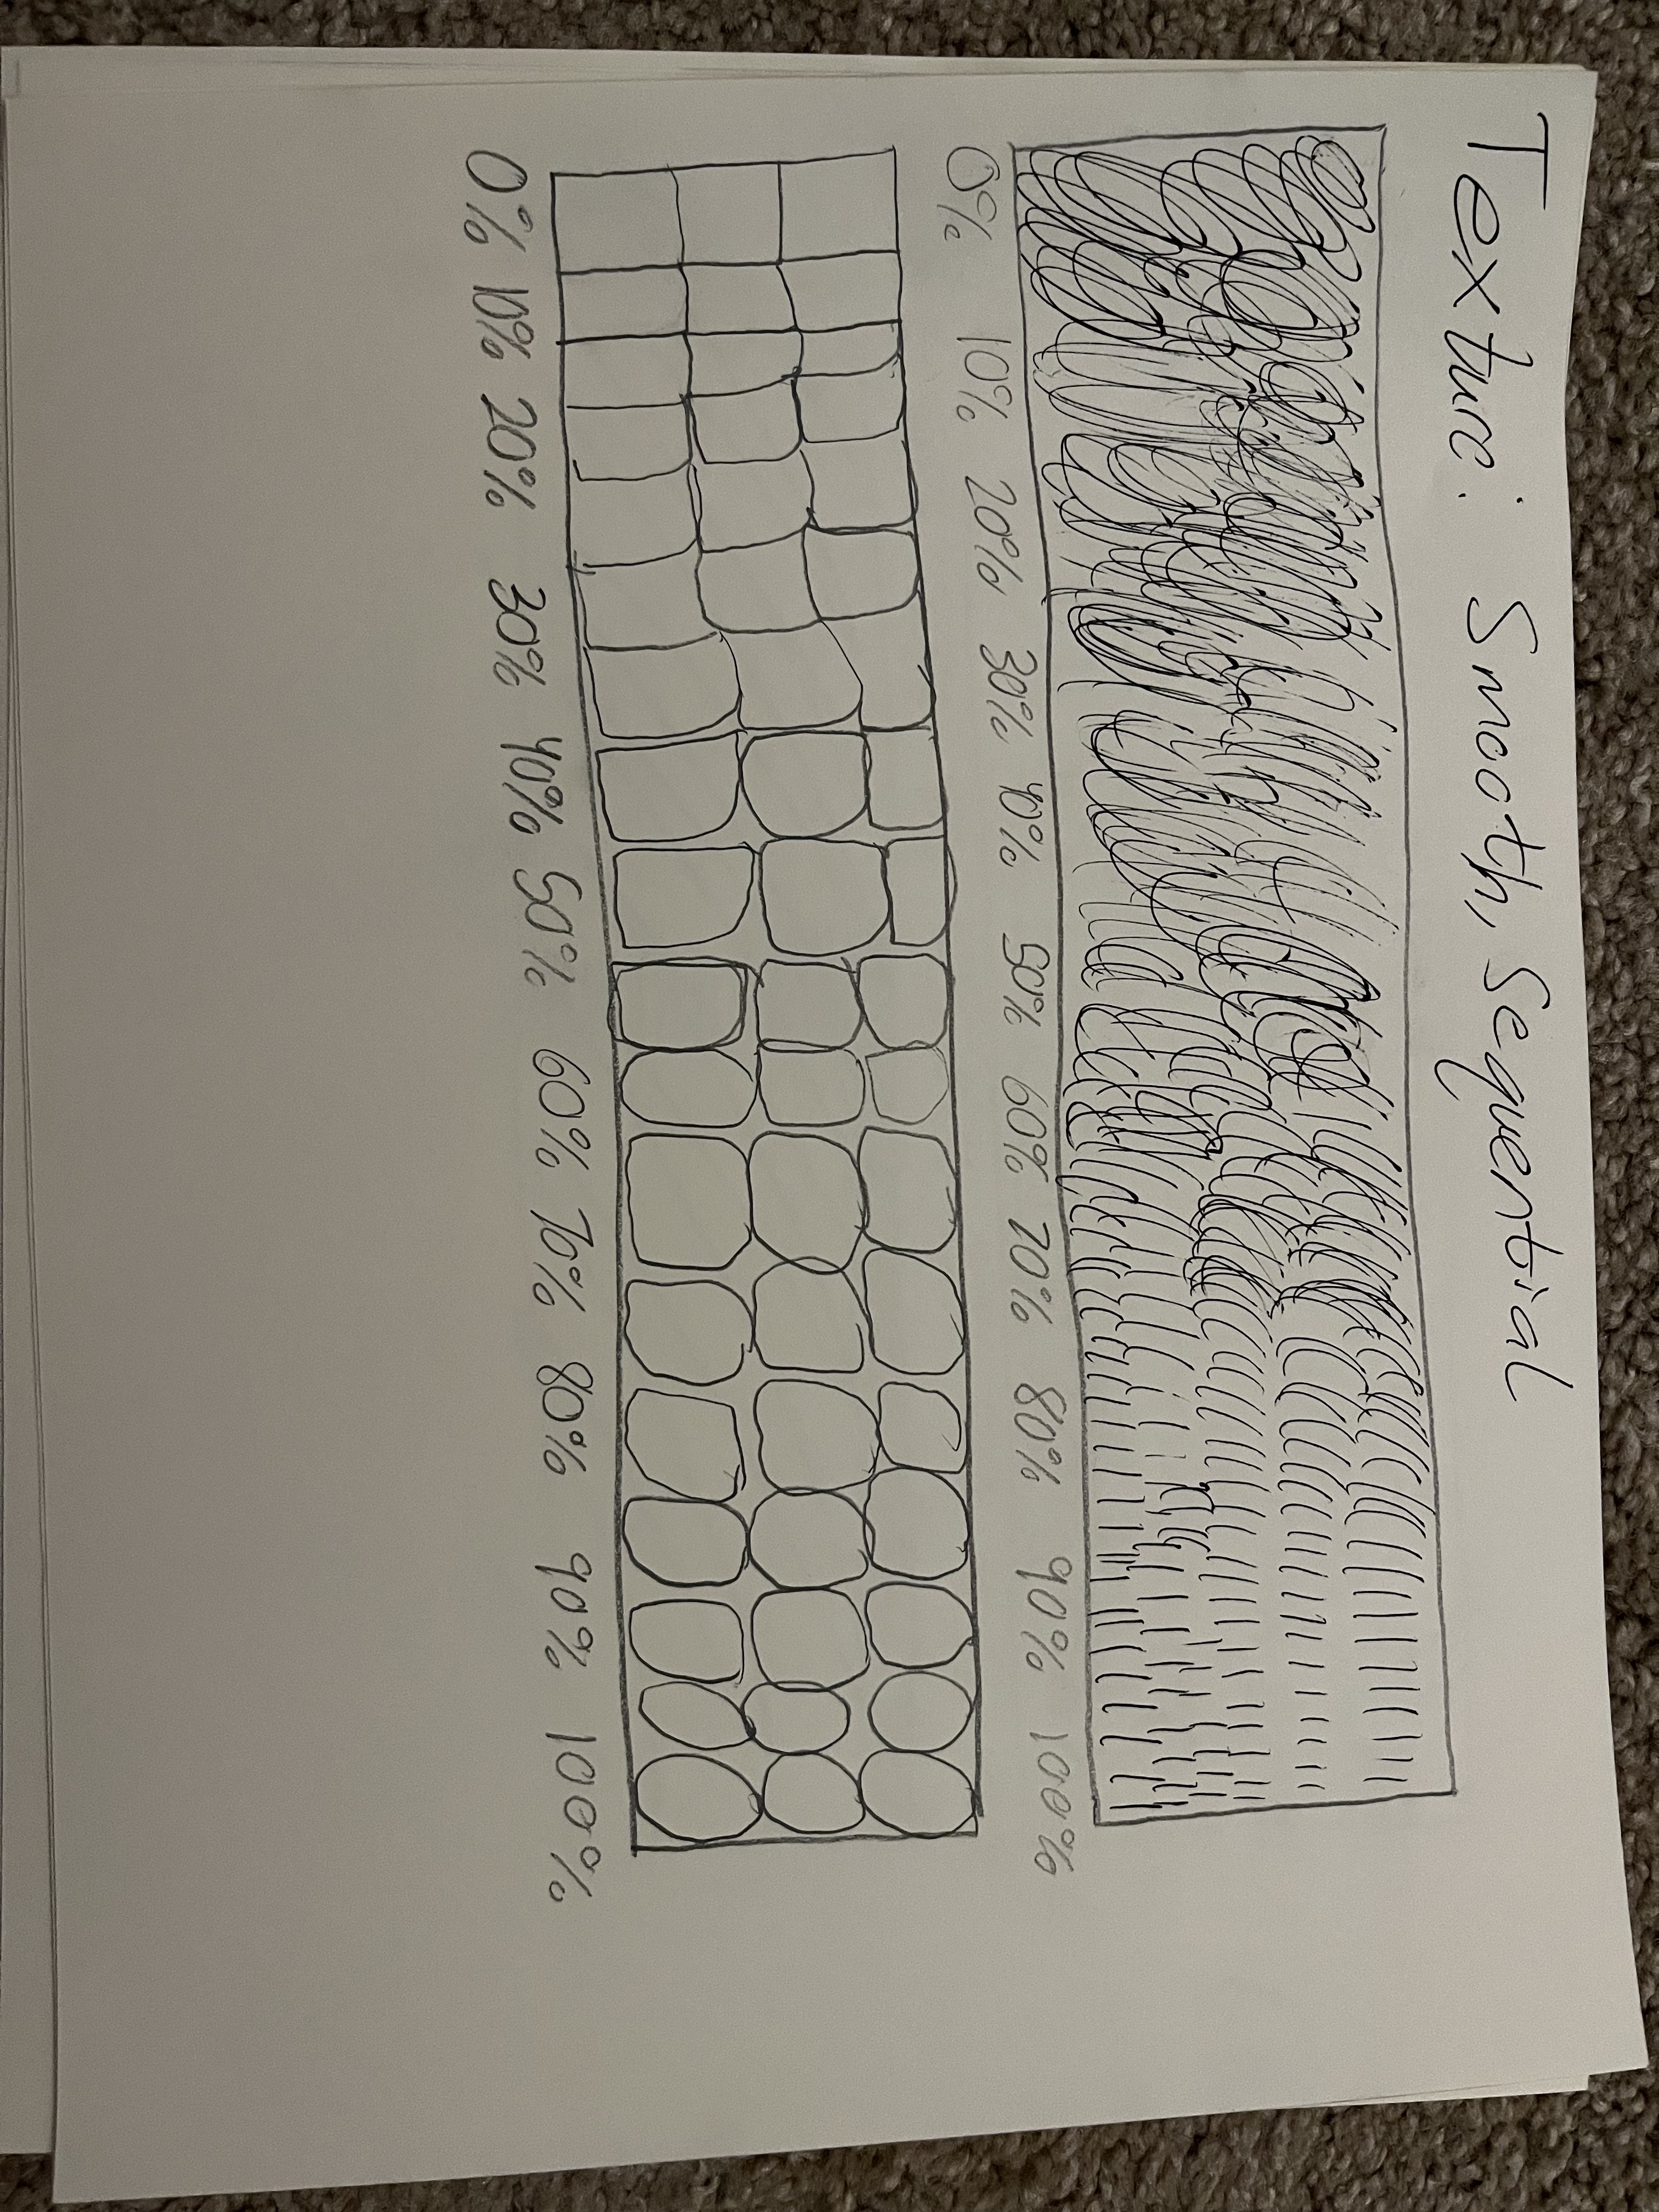 Texture: Smooth, Sequential
0% 10% 20% 30% 40% 50% 60% 70% 80% 90% 100%
0% 10% 20% 30% 40% 50% 60% 70% 80% 90% 100%